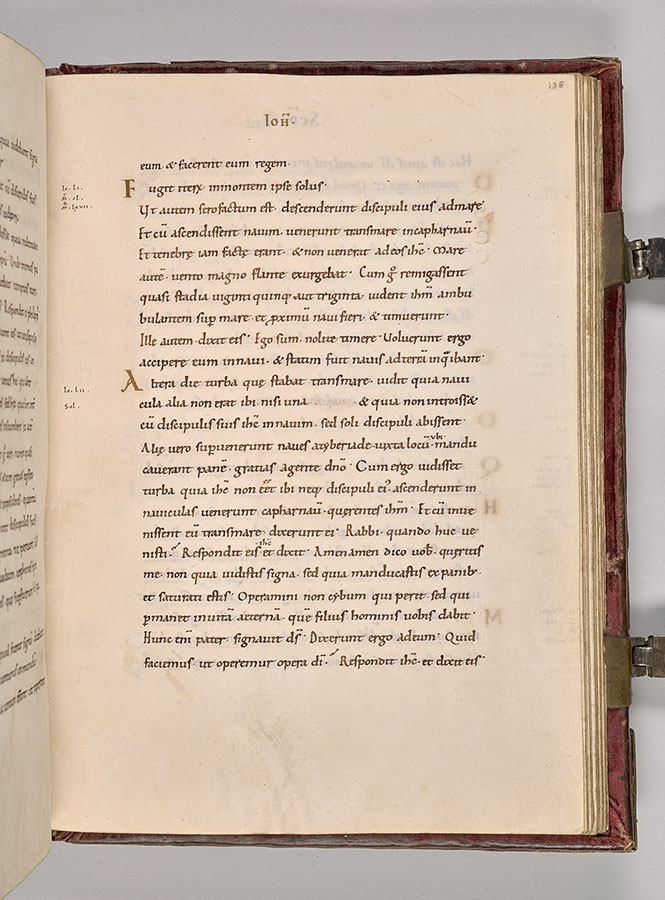 138
Ioh̄·
eum· & facerent eum regem·
Fugit iterū inmontem ipse solus·
Ut autem serofactum est· descenderunt discipuli eius admare·
Et cū ascendissent navim· venerunt transmare incapharnaū·
Et tenebrę iam factę erant· & non venerat adeos ihc̄· Mare
autē· vento magno flante exurgebat· Cum g̊ remigassent
quasi stadia viginti quinq; aut triginta· vident ihm̄ ambu
lantem sup mare· et proximū navi fieri· & timuerunt·
Ille autem· dixit eis· Ego sum· nolite timere· Voluerunt ergo
accipere eum innavi· & statim fuit navis adterrā inquā ibant·
Altera die turba quę stabat transmare· vidit quia navi
cula alia non erat ibi nisi una· & quia non introisset
cū discipulis suis ihc̄ innavim· sed soli discipuli abissent·
Alię vero supvenerunt naves atyberiade iuxta locū· ubi mandu
caverant panē· gratias agente dnō· Cum ergo vidisset
turba quia ihc̄ non eēt ibi neq; discipuli ei'· ascenderunt in
naviculas venerunt capharnaū· querentes ihm̄· Et cū inve
nissent eū transmare· dixerunt ei· Rabbi· quando huc ve
nisti· Respondit eis ihc̄ et dixit· Amenamen dico vob̄· queritis
me· non quia vidistis signa· sed quia manducastis expanib·
et saturati estis· Operamini non cybum qui perit· sed qui
pmanet invitā aeternā· quē filius hominis vobis dabit·
Hunc enī pater· signavit ds̄· Dixerunt ergo adeum· Quid
faciemus ut operemur opera dī· Respondit ihc̄· et dixit eis·
Io. li.
m̄. cl.
m̄. lxvii.
Io. lii.
Sol.